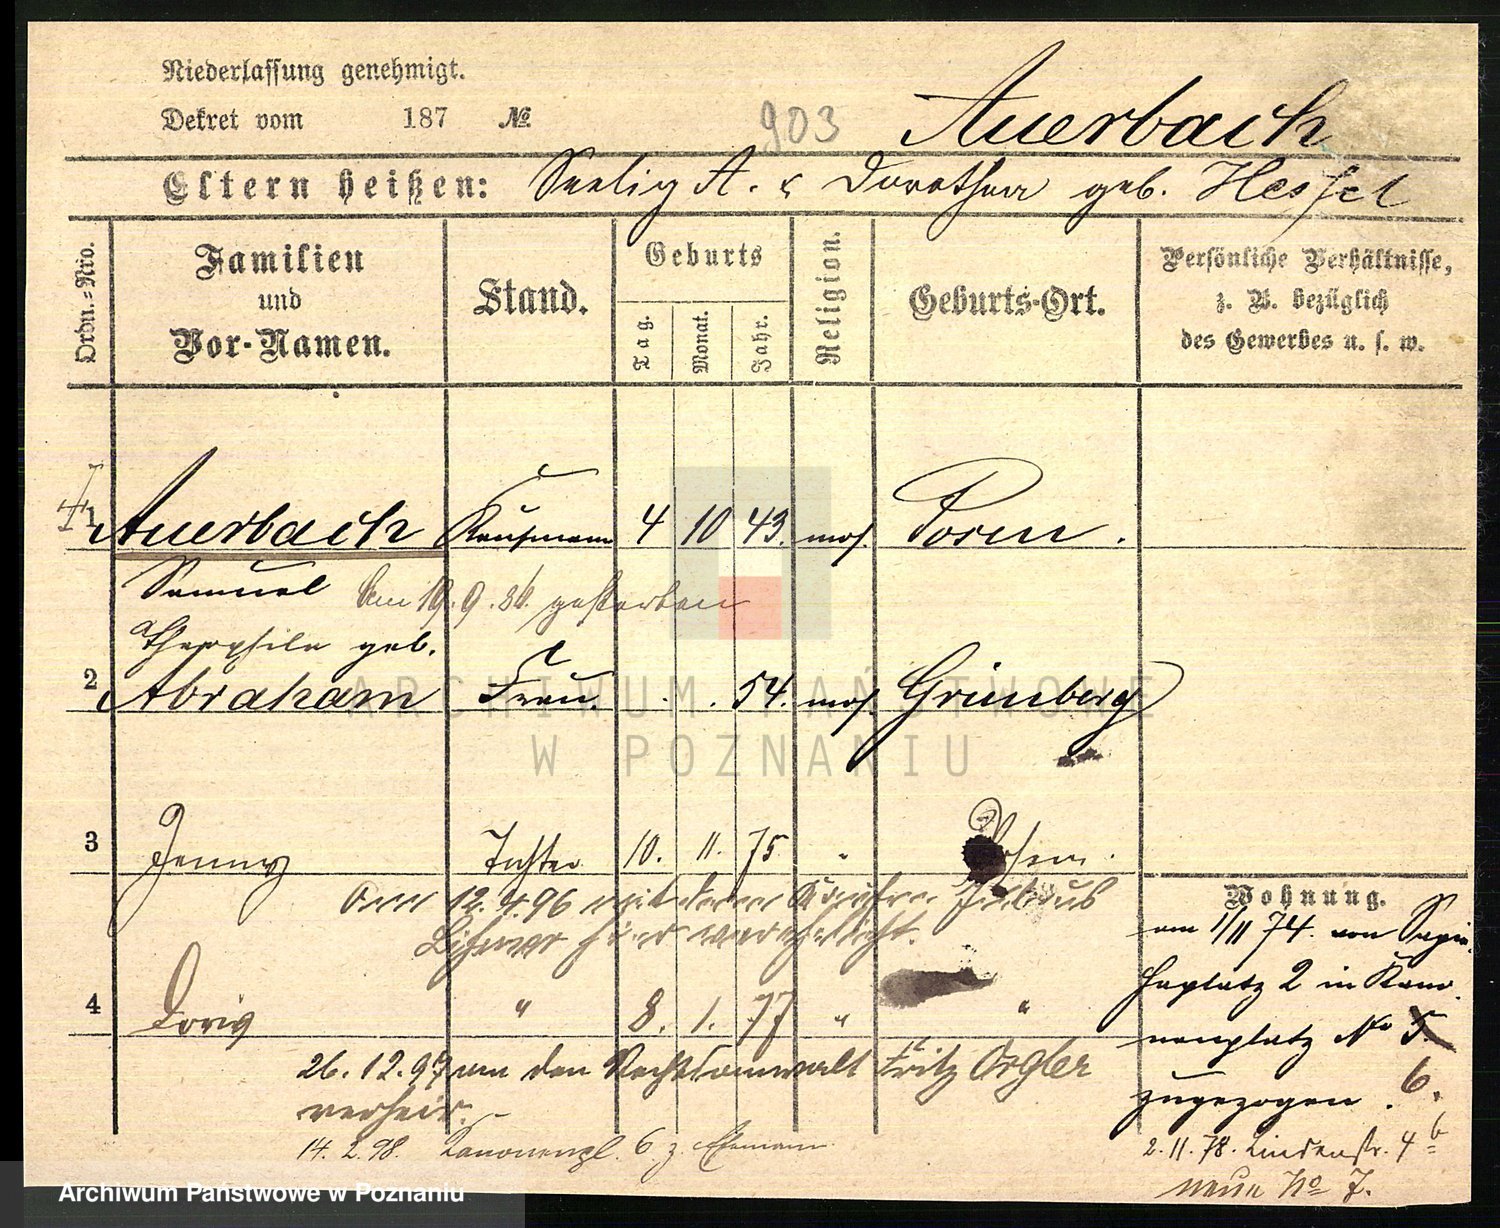 Niederlassung genehmigt.
Dekret vom 187 №
903
Auerbach
Eltern heißen: Seelig A. & Dorothea geb. Hessel
Ordn.-Nro.
Familien
und
Vor-Namen.
Stand.
Geburts
Tag.
Monat.
Jahr.
Religion.
Geburts-Ort.
Persönliche Verhältnisse,
z. B. bezüglich
des Gewerbes u. s. w.
1 Auerbach Kaufmann 4 10 43. mos. Posen.
Samuel Am 19.9.86. gestorben
Theophile geb.
2 Abraham Frau. . . 54. mos. Grünberg
3 Jenny Tochter 10. 11. 75 " Posen.
Am 12.4.96 mit dem Kaufm. Julius
hier verehelicht.
4 Doris " 8. 1. 77 " "
26.12.97 an den Rechtsanwalt Fritz Orgler
verheir.
14.2.98. Kanonenpl. 6 z. Ehemann
Wohnung.
am 1/11 74. von Sapie-
haplatz 2 in Kano-
nenplatz No 5.
zugezogen. 6.
2.11.78. Lindenstr. 4b
neue No 7.
ARCHIWUM PAŃSTWOWE
W POZNANIU
Archiwum Państwowe w Poznaniu